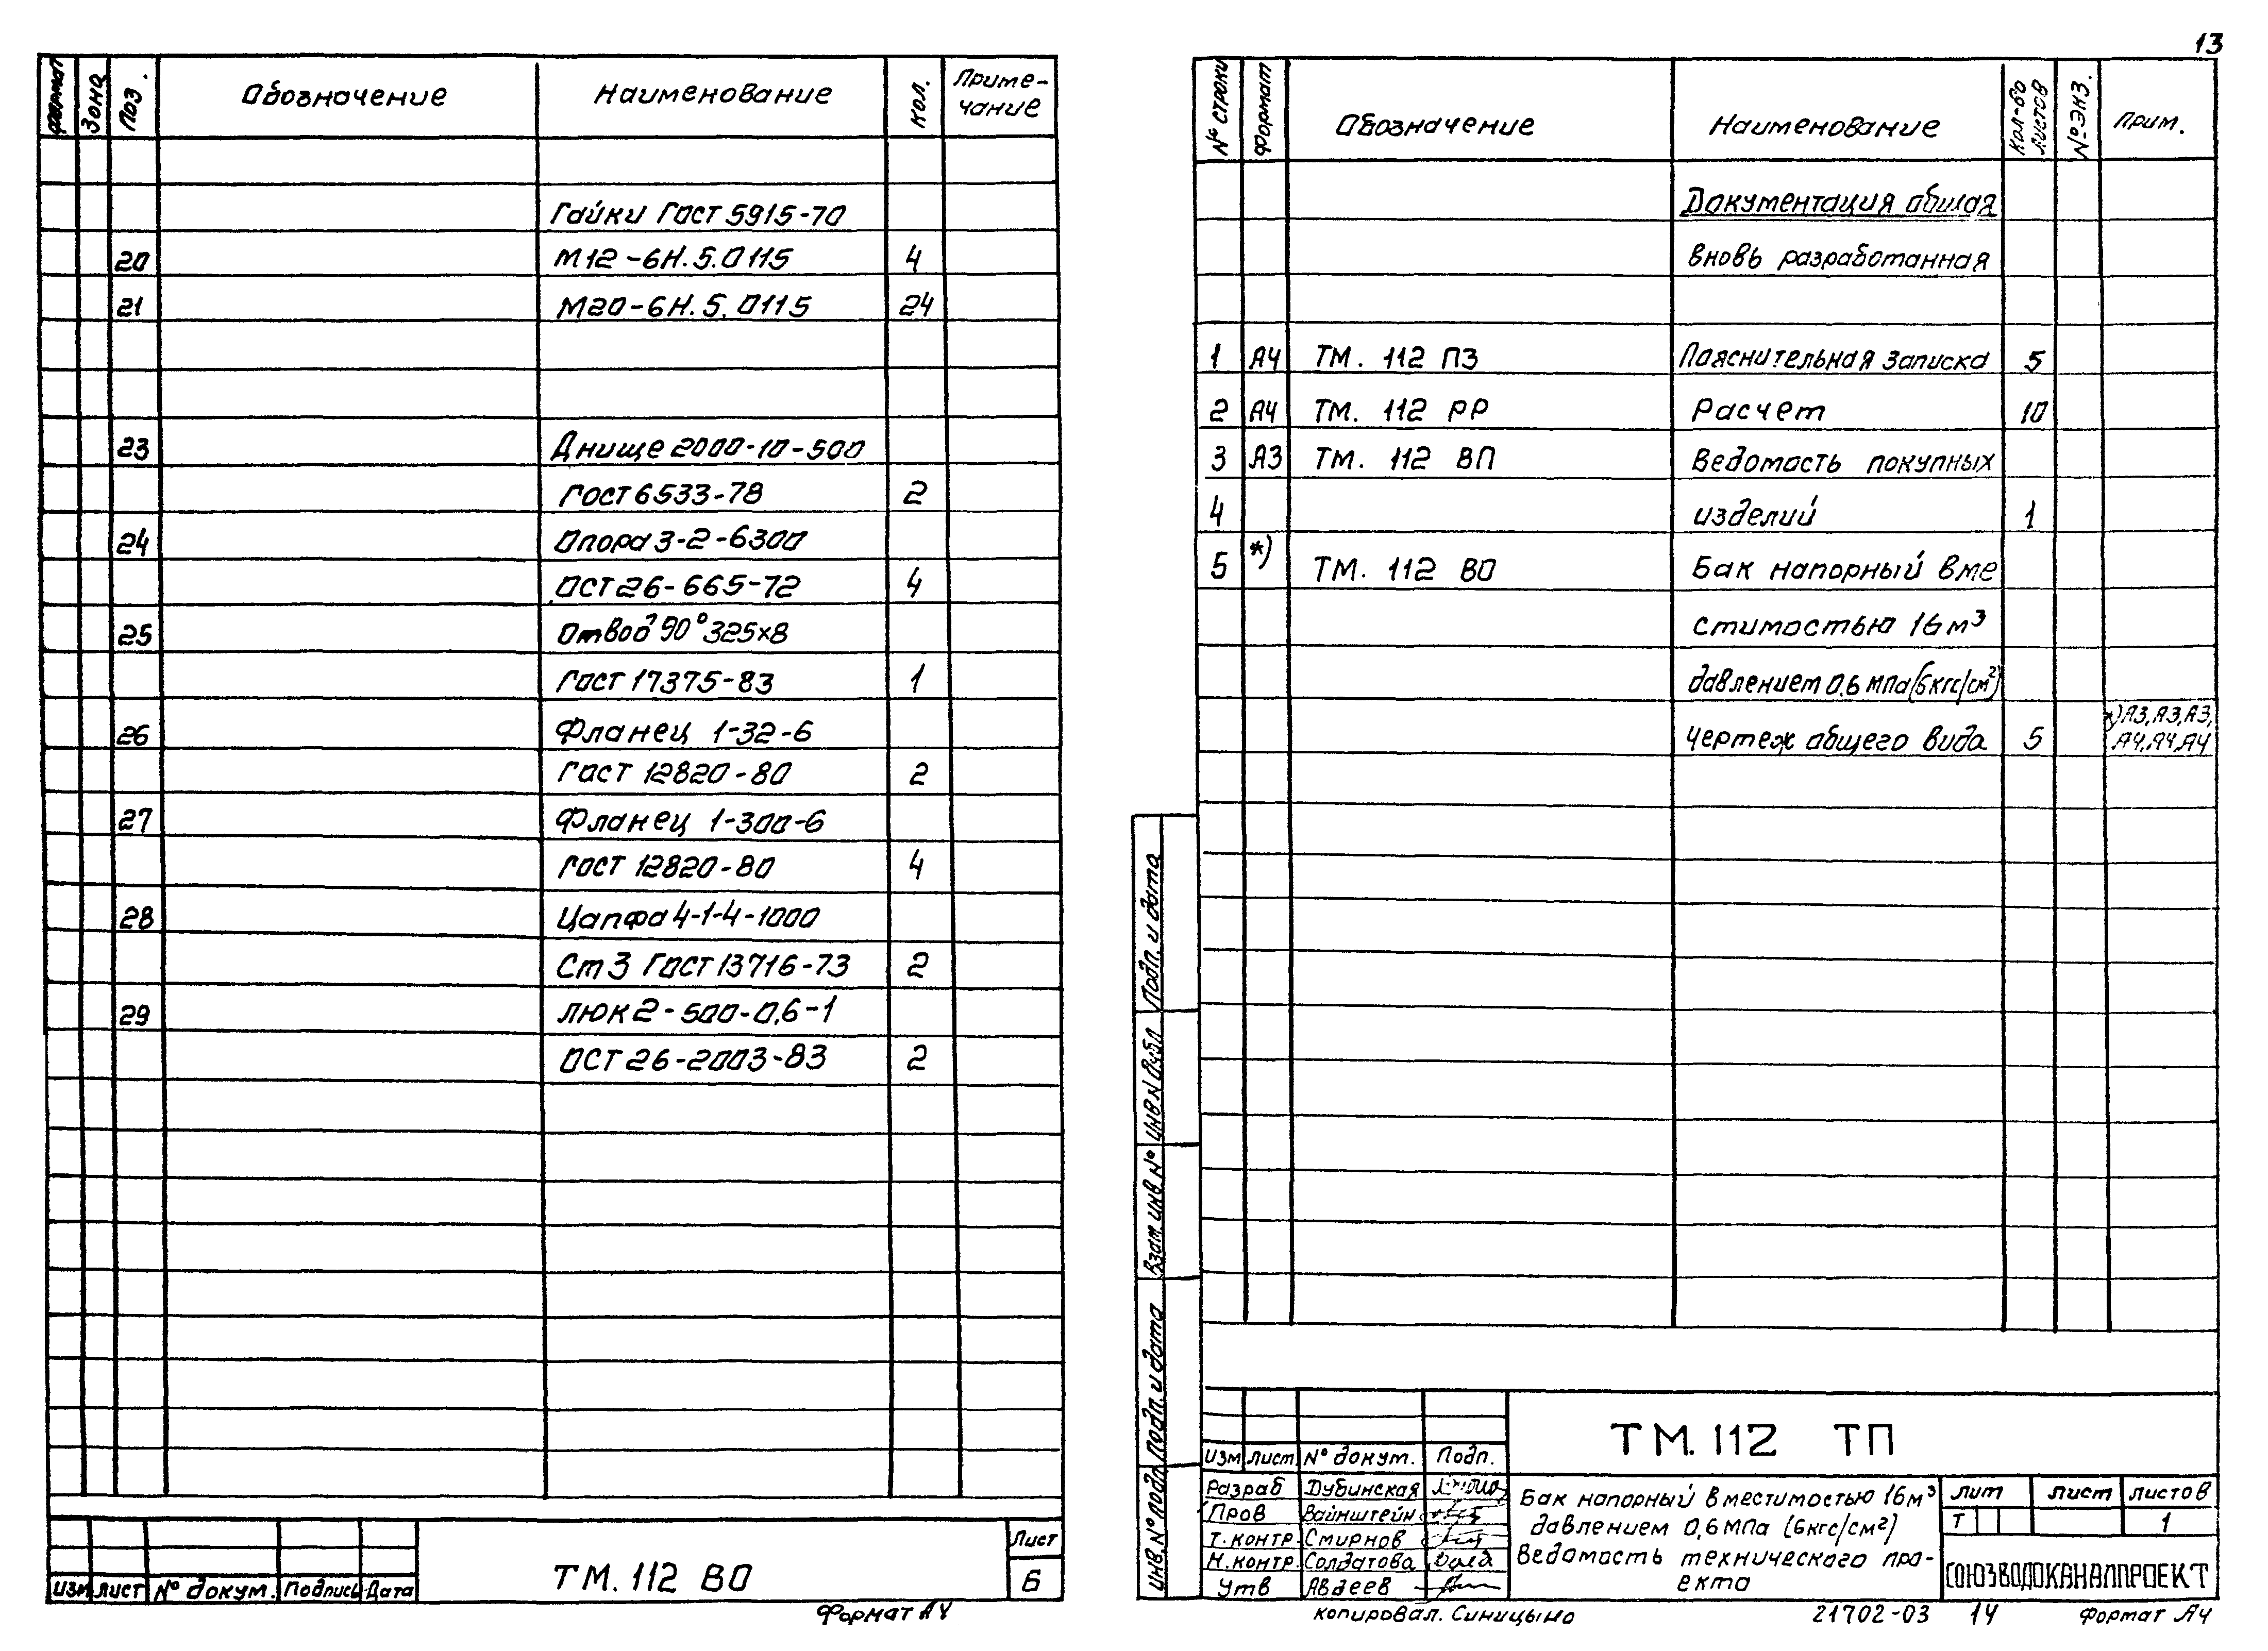 13
Формат Зона Поз. Обозначение Наименование Кол. Приме-
чание
Гайки Гост 5915-70
20 М12-6Н.5.0115 4
21 М20-6Н.5.0115 24
23 Днище 2000-10-500
Гост 6533-78 2
24 Опора 3-2-6300
ОСТ 26-665-72 4
25 Отвод 90° 325х8
Гост 17375-83 1
26 Фланец 1-32-6
Гост 12820-80 2
27 Фланец 1-300-6
Гост 12820-80 4
28 Цапфа 4-1-4-1000
Ст 3 Гост 13716-73 2
29 Люк 2-500-0,6-1
ОСТ 26-2003-83 2
Изм Лист № докум. Подпись Дата
ТМ.112 ВО
Лист
6
Формат А4
№ строки Формат Обозначение Наименование Кол-во листов № экз. Прим.
Документация общая
вновь разработанная
1 А4 ТМ. 112 ПЗ Пояснительная записка 5
2 А4 ТМ. 112 РР Расчет 10
3 А3 ТМ. 112 ВП Ведомость покупных
4 изделий 1
5 *) ТМ. 112 ВО Бак напорный вме
стимостью 16 м³
давлением 0,6 МПа (6кгс/см²)
чертеж общего вида 5 *) А3, А3, А3,
А4, А4, А4
Подп. и дата
Инв N дубл
Взам. инв №
Подп. и дата
Инв. № подл
ТМ.112 ТП
Изм Лист № докум. Подп.
Разраб Дубинская
Пров Вайнштейн
Т.контр. Смирнов
Н.контр. Солдатова
Утв Авдеев
Бак напорный вместимостью 16м³
давлением 0,6 МПа (6кгс/см²)
Ведомость технического про-
екта
Лит Лист Листов
Т 1
СОЮЗВОДОКАНАЛПРОЕКТ
копировал. Синицына 21702-03 14 Формат А4